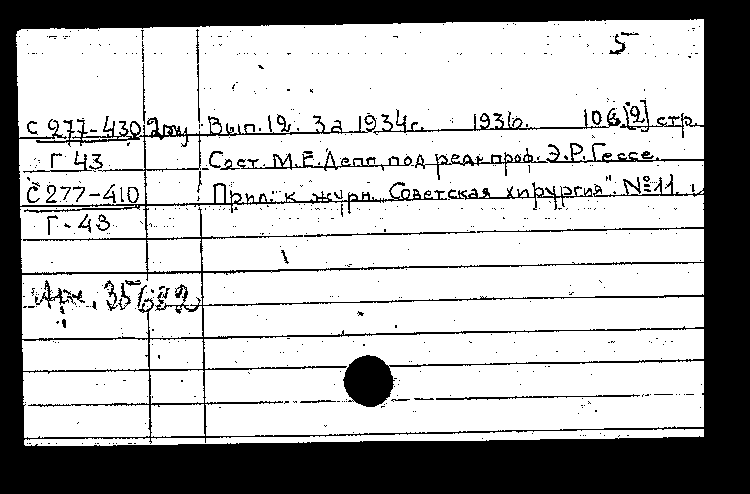 5
С 277-430 2экз Вып. 12. За 1934г. 1936. 106,[2] стр.
Г 43 Сост. М.Е.Депп, под ред. проф. Э.Р.Гессе.
С 277-410 Прил. к журн. Советская хирургия". №11.
Г-43
35682